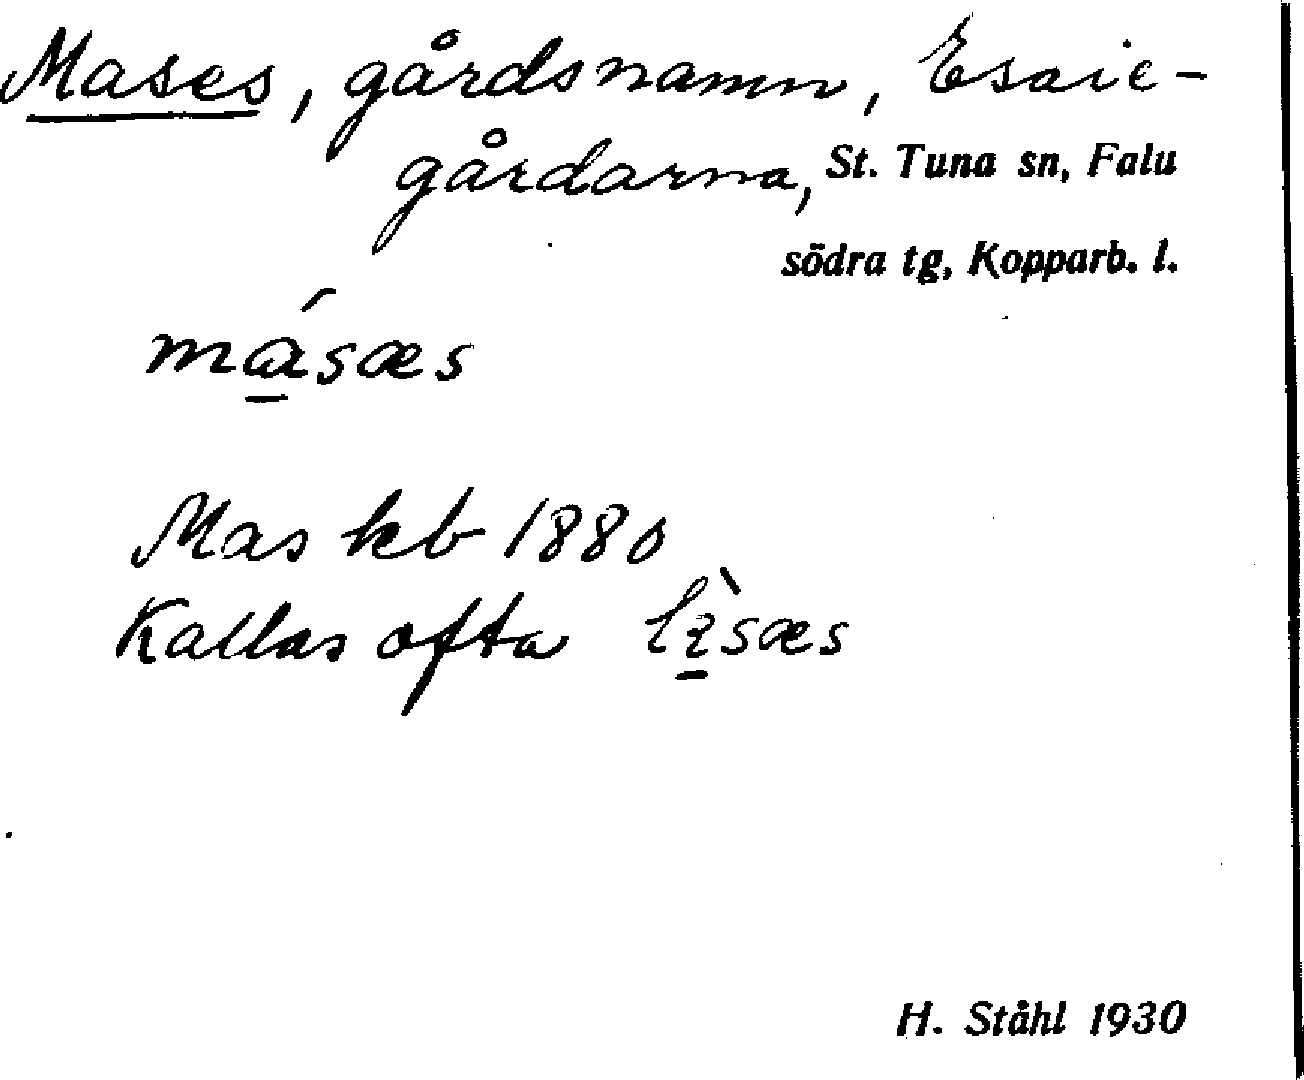 Mases, gårdsnamn, Esaie-
gårdarna, St. Tuna sn, Falu
södra tg, Kopparb. l.
má̱sæs
Mas kb 1880
Kallas ofta lı̱̀sæs
H. Ståhl 1930